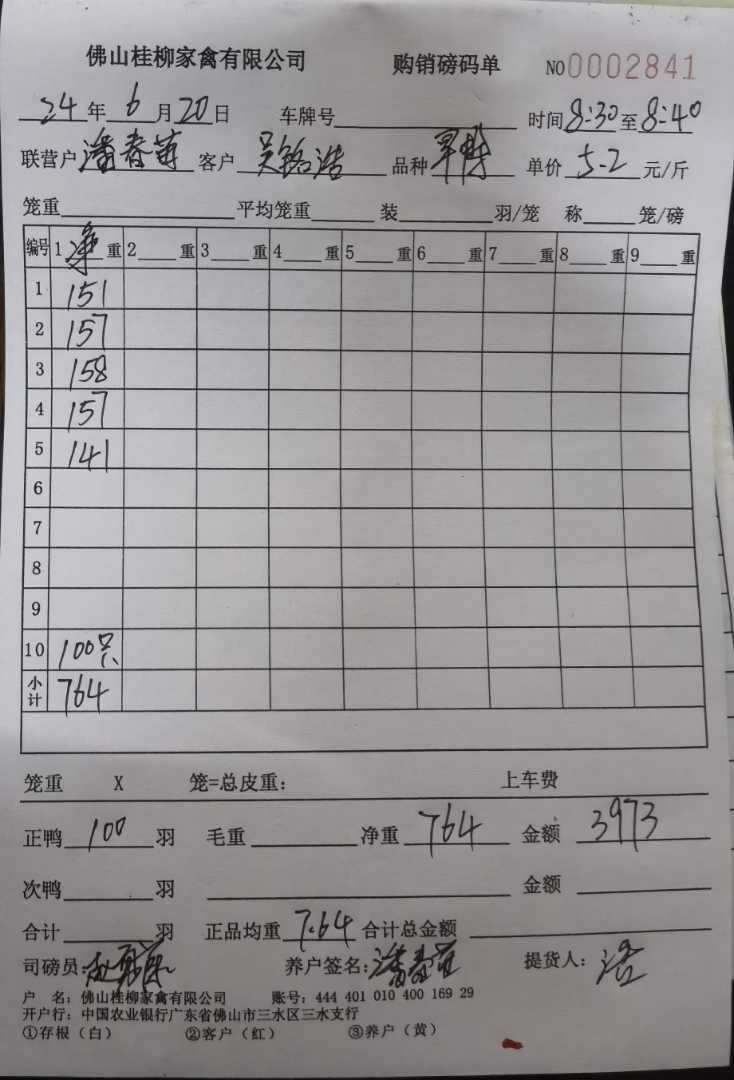 佛山桂柳家禽有限公司 购销磅码单 NO0002841
24年6月20日 车牌号 时间8:30至8:40
联营户潘春苗 客户吴铭浩 品种 单价5.2元/斤
笼重 平均笼重 装 羽/笼 称 笼/磅
编号 1净重 2 重 3 重 4 重 5 重 6 重 7 重 8 重 9 重
1 151
2 157
3 158
4 157
5 141
6
7
8
9
10 100只
小计 764
笼重 X 笼=总皮重: 上车费
正鸭100羽 毛重 净重764 金额3973
次鸭 羽 金额
合计 羽 正品均重7.64 合计总金额
司磅员: 养户签名:潘春苗 提货人:浩
户 名:佛山桂柳家禽有限公司 账号:444 401 010 400 169 29
开户行:中国农业银行广东省佛山市三水区三水支行
①存根(白) ②客户(红) ③养户(黄)